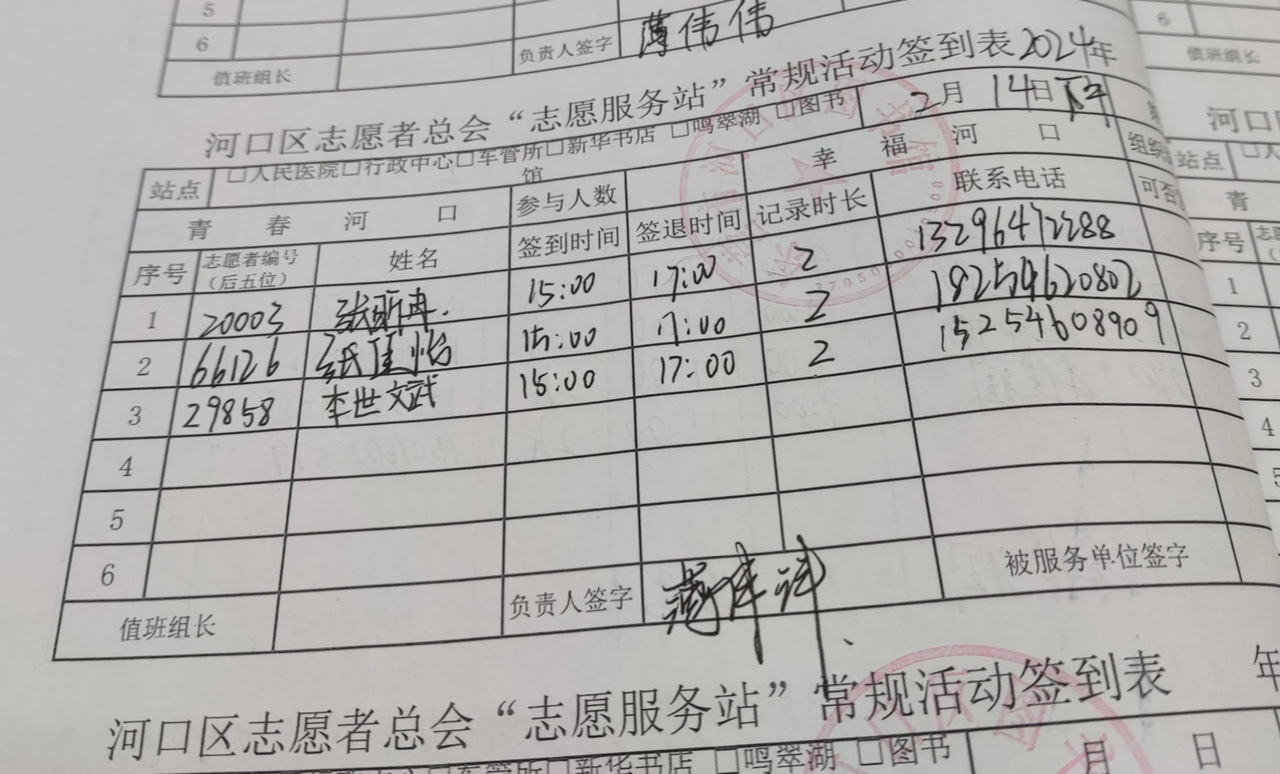 5
6
值班组长 负责人签字 薄伟伟
6
值班组长
河口区志愿者总会“志愿服务站”常规活动签到表 2024年
站点 □人民医院□行政中心□车管所□新华书店 □鸣翠湖 □图书馆 2月 14日 下午
青春河口 参与人数 幸福河口
序号 志愿者编号（后五位） 姓名 签到时间 签退时间 记录时长 联系电话 可否
1 20003 15:00 17:00 2 13296472288
2 66126 张佳怡 15:00 17:00 2 18254620802
3 29858 李世文武 15:00 17:00 2 15254608909
4
5
6
值班组长 负责人签字 被服务单位签字
河口
站点
青
序号
1
2
3
4
5
河口区志愿者总会“志愿服务站”常规活动签到表 年
□新华书店 □鸣翠湖 □图书 月 日